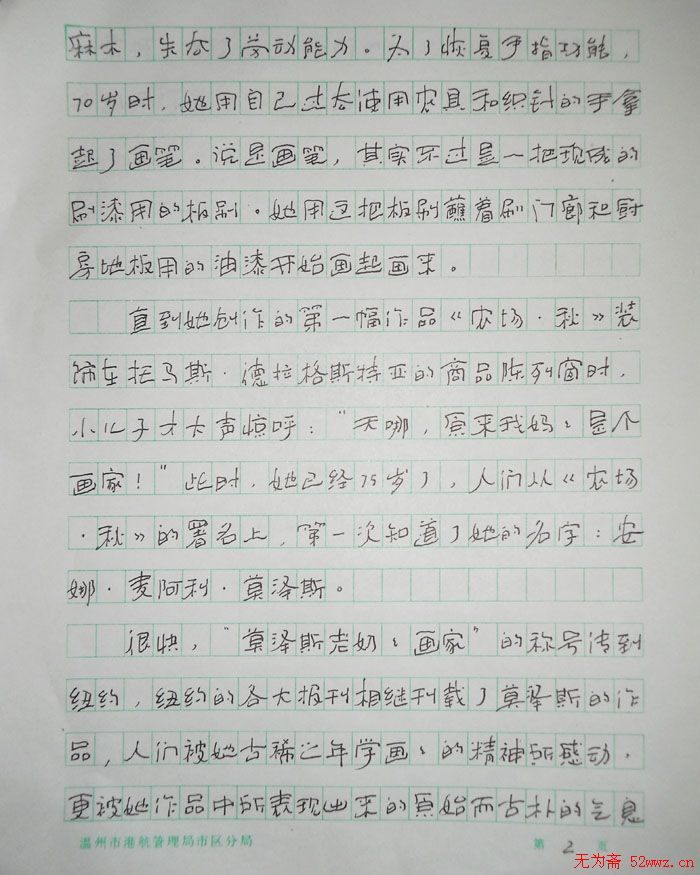 麻木，失去了劳动能力。为了恢复手指功能，
70岁时，她用自己过去使用农具和织针的手拿
起了画笔。说是画笔，其实不过是一把现成的
刷漆用的板刷。她用这把板刷蘸着刷门廊和厨
房地板用的油漆开始画起画来。
直到她创作的第一幅作品《农场·秋》装
饰在托马斯·德拉格斯特亚的商品陈列窗时，
小儿子才大声惊呼："天哪，原来我妈々是个
画家！"此时，她已经75岁了，人们从《农场
·秋》的署名上，第一次知道了她的名字：安
娜·麦阿利·莫泽斯。
很快，"莫泽斯老奶々画家"的称号传到
纽约，纽约的各大报刊相继刊载了莫泽斯的作
品，人们被她古稀之年学画々的精神所感动，
更被她作品中所表现出来的原始而古朴的气息
温州市港航管理局市区分局 第 2 页
无为斋 52wwz.cn